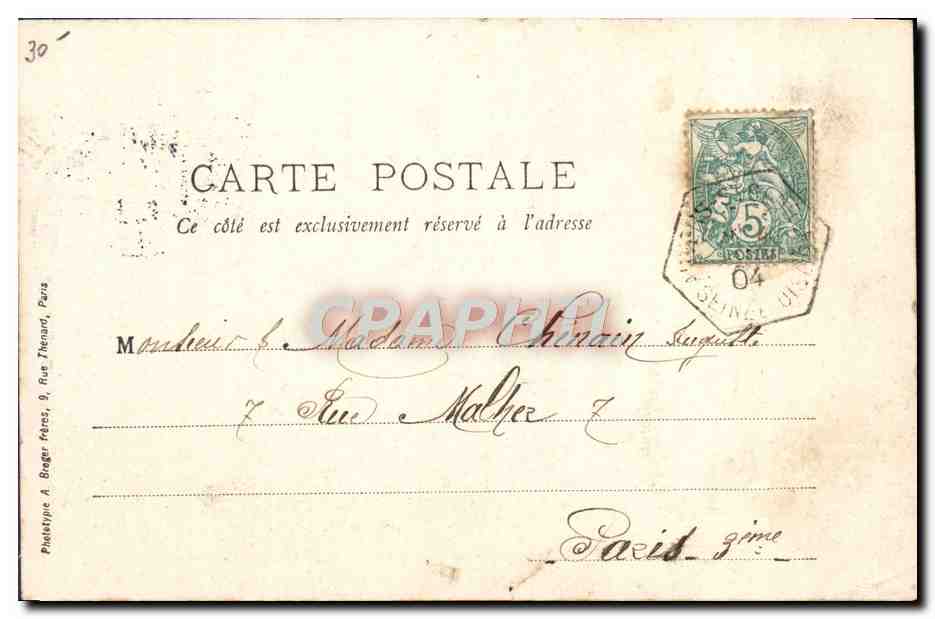 30
CARTE POSTALE
Ce côté est exclusivement réservé à l'adresse
5
POSTES
04
SEINE
CPAPHIL
Monsieur & Madame Chinain Auguste
7 Rue Malher 7
Paris 3ème
Phototypie A. Breger frères, 9, Rue Thenard, Paris